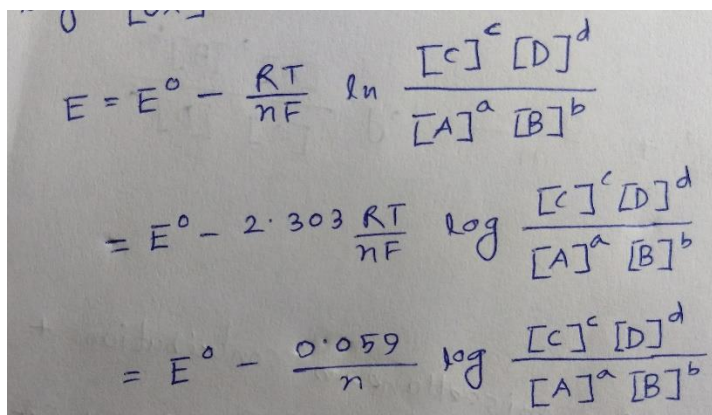 E = E⁰ − RT/nF ln [C]ᶜ [D]ᵈ / [A]ᵃ [B]ᵇ
= E⁰ − 2.303 RT/nF log [C]ᶜ [D]ᵈ / [A]ᵃ [B]ᵇ
= E⁰ − 0.059/n log [C]ᶜ [D]ᵈ / [A]ᵃ [B]ᵇ